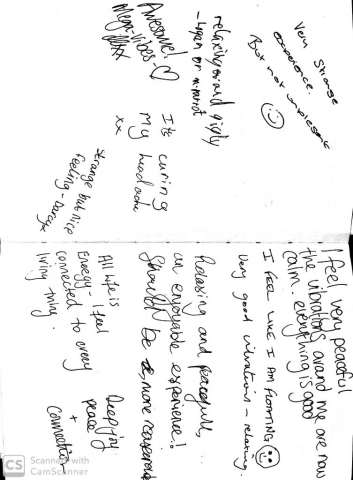 Very Strange
experience.
But not unpleasant
relaxing and
Awesome!
Mega-vibes-
Its curing
My headache
xx
Strange but nice
feeling -
I feel very peaceful
the vibrations around me are now
calm. everything is good
I FEEL LIKE I AM FLOATING
Very good vibrations - relaxing.
Relaxing and peaceful,
an enjoyable experience!
Should be more
All life is
Energy - I feel
connected to every
living thing.
Deep joy
peace
+
connection
CS Scanned with
CamScanner